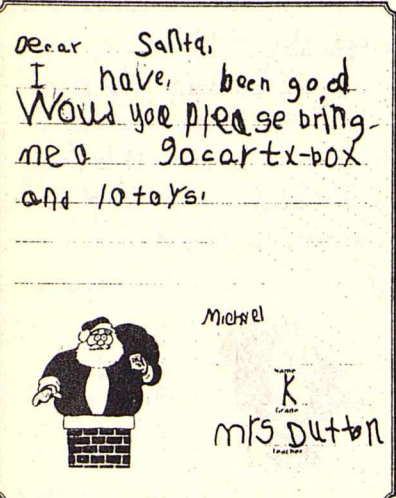 Decar Santa,
I have, been good
Would you please bring-
me a gocart x-box
and 10 toys.
Michael
Name
K
Grade
mrs Dutton
Teacher